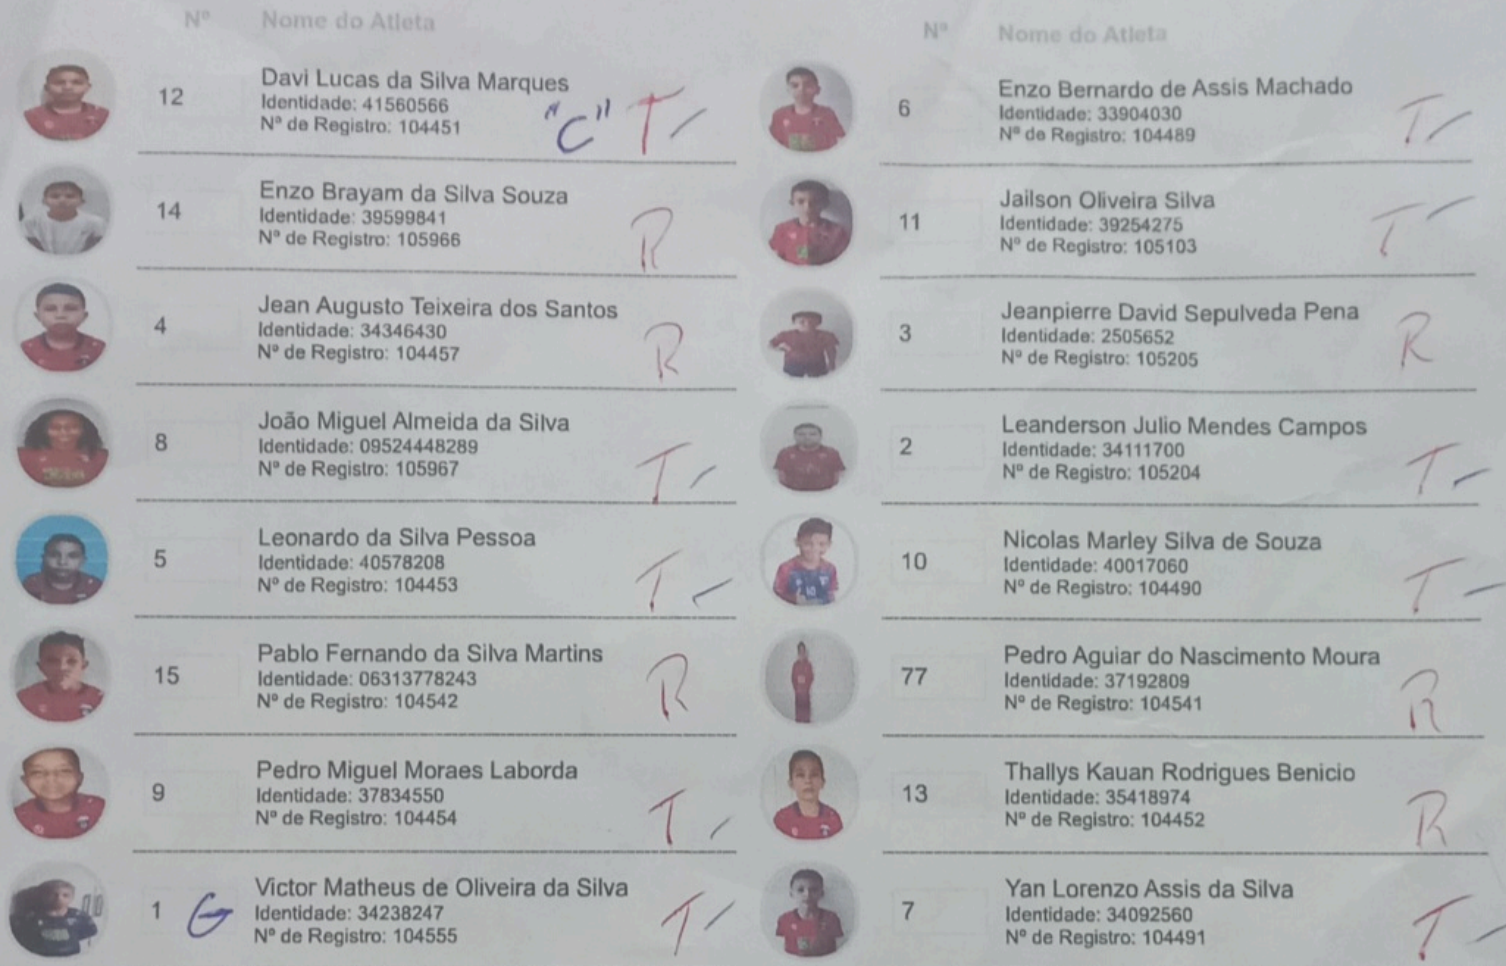 Nº Nome do Atleta
12 Davi Lucas da Silva Marques
Identidade: 41560566
Nº de Registro: 104451
"C" T -
14 Enzo Brayam da Silva Souza
Identidade: 39599841
Nº de Registro: 105966
R
4 Jean Augusto Teixeira dos Santos
Identidade: 34346430
Nº de Registro: 104457
R
8 João Miguel Almeida da Silva
Identidade: 09524448289
Nº de Registro: 105967
T -
5 Leonardo da Silva Pessoa
Identidade: 40578208
Nº de Registro: 104453
T -
15 Pablo Fernando da Silva Martins
Identidade: 06313778243
Nº de Registro: 104542
R
9 Pedro Miguel Moraes Laborda
Identidade: 37834550
Nº de Registro: 104454
T -
1 G Victor Matheus de Oliveira da Silva
Identidade: 34238247
Nº de Registro: 104555
T -
Nº Nome do Atleta
6 Enzo Bernardo de Assis Machado
Identidade: 33904030
Nº de Registro: 104489
T -
11 Jailson Oliveira Silva
Identidade: 39254275
Nº de Registro: 105103
T -
3 Jeanpierre David Sepulveda Pena
Identidade: 2505652
Nº de Registro: 105205
R
2 Leanderson Julio Mendes Campos
Identidade: 34111700
Nº de Registro: 105204
T -
10 Nicolas Marley Silva de Souza
Identidade: 40017060
Nº de Registro: 104490
T -
77 Pedro Aguiar do Nascimento Moura
Identidade: 37192809
Nº de Registro: 104541
R
13 Thallys Kauan Rodrigues Benicio
Identidade: 35418974
Nº de Registro: 104452
R
7 Yan Lorenzo Assis da Silva
Identidade: 34092560
Nº de Registro: 104491
T -